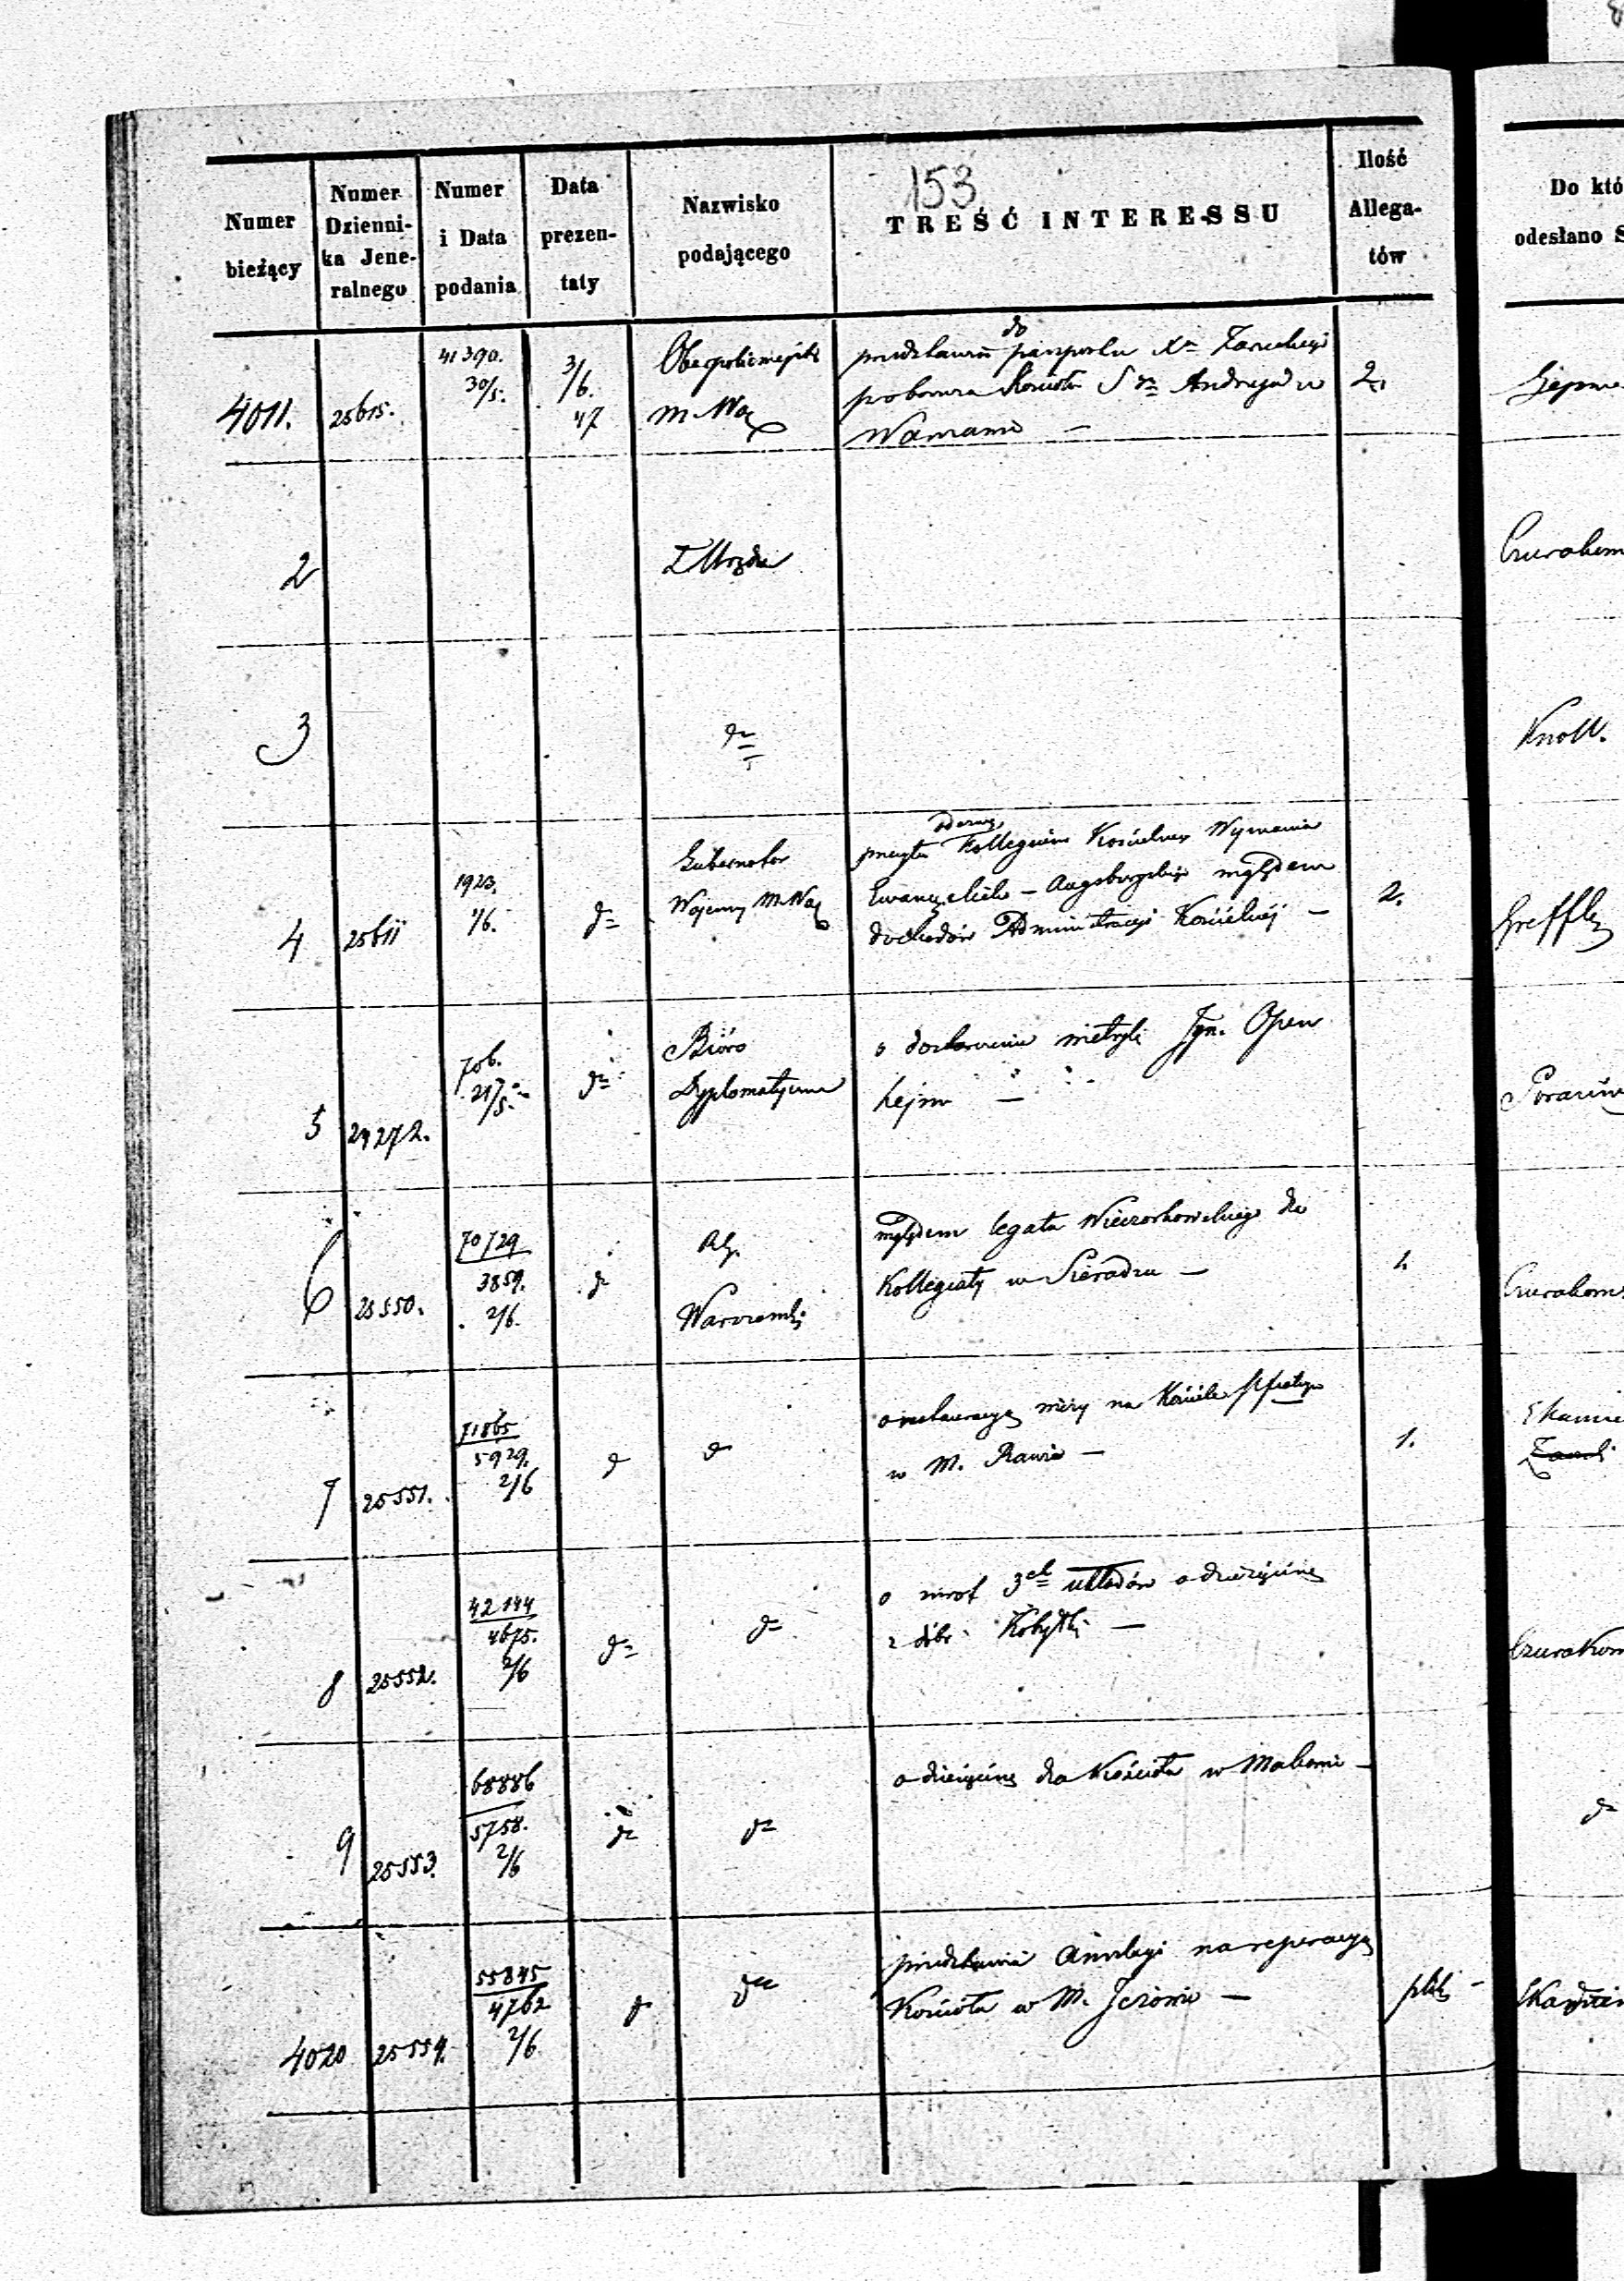 153
Numer bieżący
Numer Dzienni-ka Jene-ralnego
Numer i Data podania
Data prezen-taty
Nazwisko podającego
TREŚĆ INTERESSU
Ilość Allega-tów
Do któ
odesłano S
4011. 25615. 41390. 30/5. 3/6. 47 Oberpolicmajster m. Wa
do
paszportu
pobo Kościoła Sgo Andrzeja w 2.
Warszawie —
2 Z Urzędu
3 do Knoll.
4 25611 1923. 1/6. do Gubernator Wojenny M. Wa
odezwę
Kollegium Kościelnego Wyznania
Ewangelicko - Augsburgskiego względem 2.
dochodów Administracyi Kościelnéj —
5 24272. 706. 21/5. do Bióro Dyplomatyczne
o dostawienie metryki Ign. Open
hejm —
6 25550. 70729 3859. 2/6. do Rz. Warszawski
względem legatu Wieczorkowskiego dla 1.
Kollegiaty w Sieradzu —
7 25551. 71865 5929. 2/6 do do
o restauracyę wieży na Kościele 1.
w M. Rawie —
8 25552. 42144 4675. 2/6 do do
o zwrot 3ch układów o dziesięcinę
z dóbr Kobyłki —
9 25553. 68886 5758. 2/6 do do
o dziesięcinę dla Kościoła w Makowie — do
4020 25554. 55845 4762 2/6 do do
na reperacyę
Kościoła w M. Jeżowie — pliki